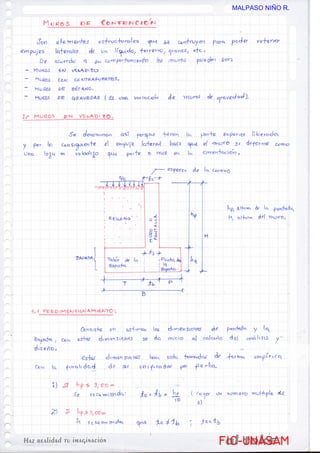 MALPASO NIÑO R.
MUROS DE CONTENCIÓN
Son elementos estructurales que se construyen para poder retener
empujes laterales de un líquido, terreno, granos, etc.
De acuerdo a su comportamiento los muros pueden ser:
- MUROS EN VOLADIZO
- MUROS CON CONTRAFUERTES.
- MUROS DE SÓTANO.
- MUROS DE GRAVEDAD (Es una variación de muros de gravedad).
1.- MUROS EN VOLADIZO.
Se denominan así porque tienen la parte superior liberada
y por lo consiguiente el empuje lateral hará que el muro se deforme como
una losa en voladizo que parte o nace en la cimentación.
espesor de la corona
RELLENO
PANTALLA
hp
hp, altura de la pantalla,
H, altura del muro.
H
ZAPATA
Talón de la zapata
Punta de la zapata
T
P
B
1.1 PREDIMENSIONAMIENTO:
Consiste en estimar las dimensiones de pantalla y la
zapata, con estas dimensiones se da inicio al cálculo del análisis y
diseño.
Estas dimensiones han sido tomadas de forma empírica
con la finalidad de no ser
1) Si hp ≤ 3.00m
Se recomienda:
hp
10
2) Si hp > 3.00m
Se recomienda que
Haz realidad tu imaginación
FIC-UNASAM